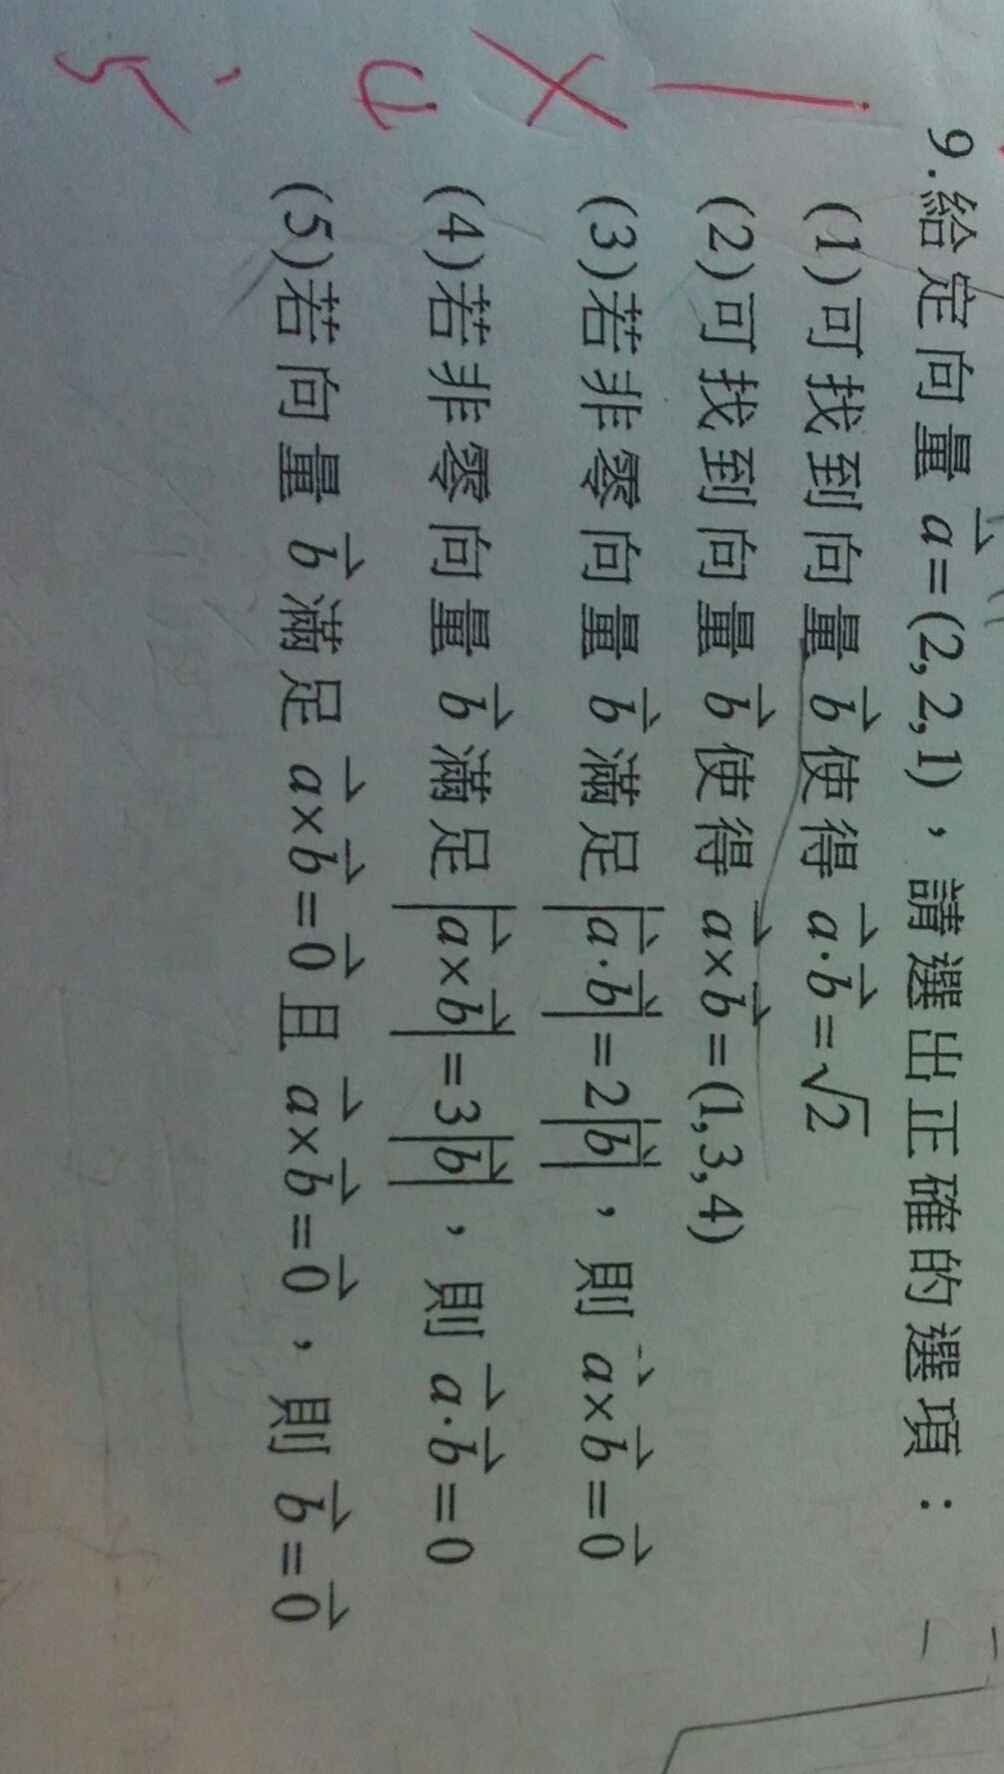 9.給定向量 a⃗=(2,2,1)，請選出正確的選項：
(1)可找到向量 b⃗ 使得 a⃗·b⃗=√2
(2)可找到向量 b⃗ 使得 a⃗×b⃗=(1,3,4)
(3)若非零向量 b⃗ 滿足 |a⃗·b⃗|=2|b⃗|，則 a⃗×b⃗=0⃗
(4)若非零向量 b⃗ 滿足 |a⃗×b⃗|=3|b⃗|，則 a⃗·b⃗=0
(5)若向量 b⃗ 滿足 a⃗×b⃗=0⃗ 且 a⃗×b⃗=0⃗，則 b⃗=0⃗